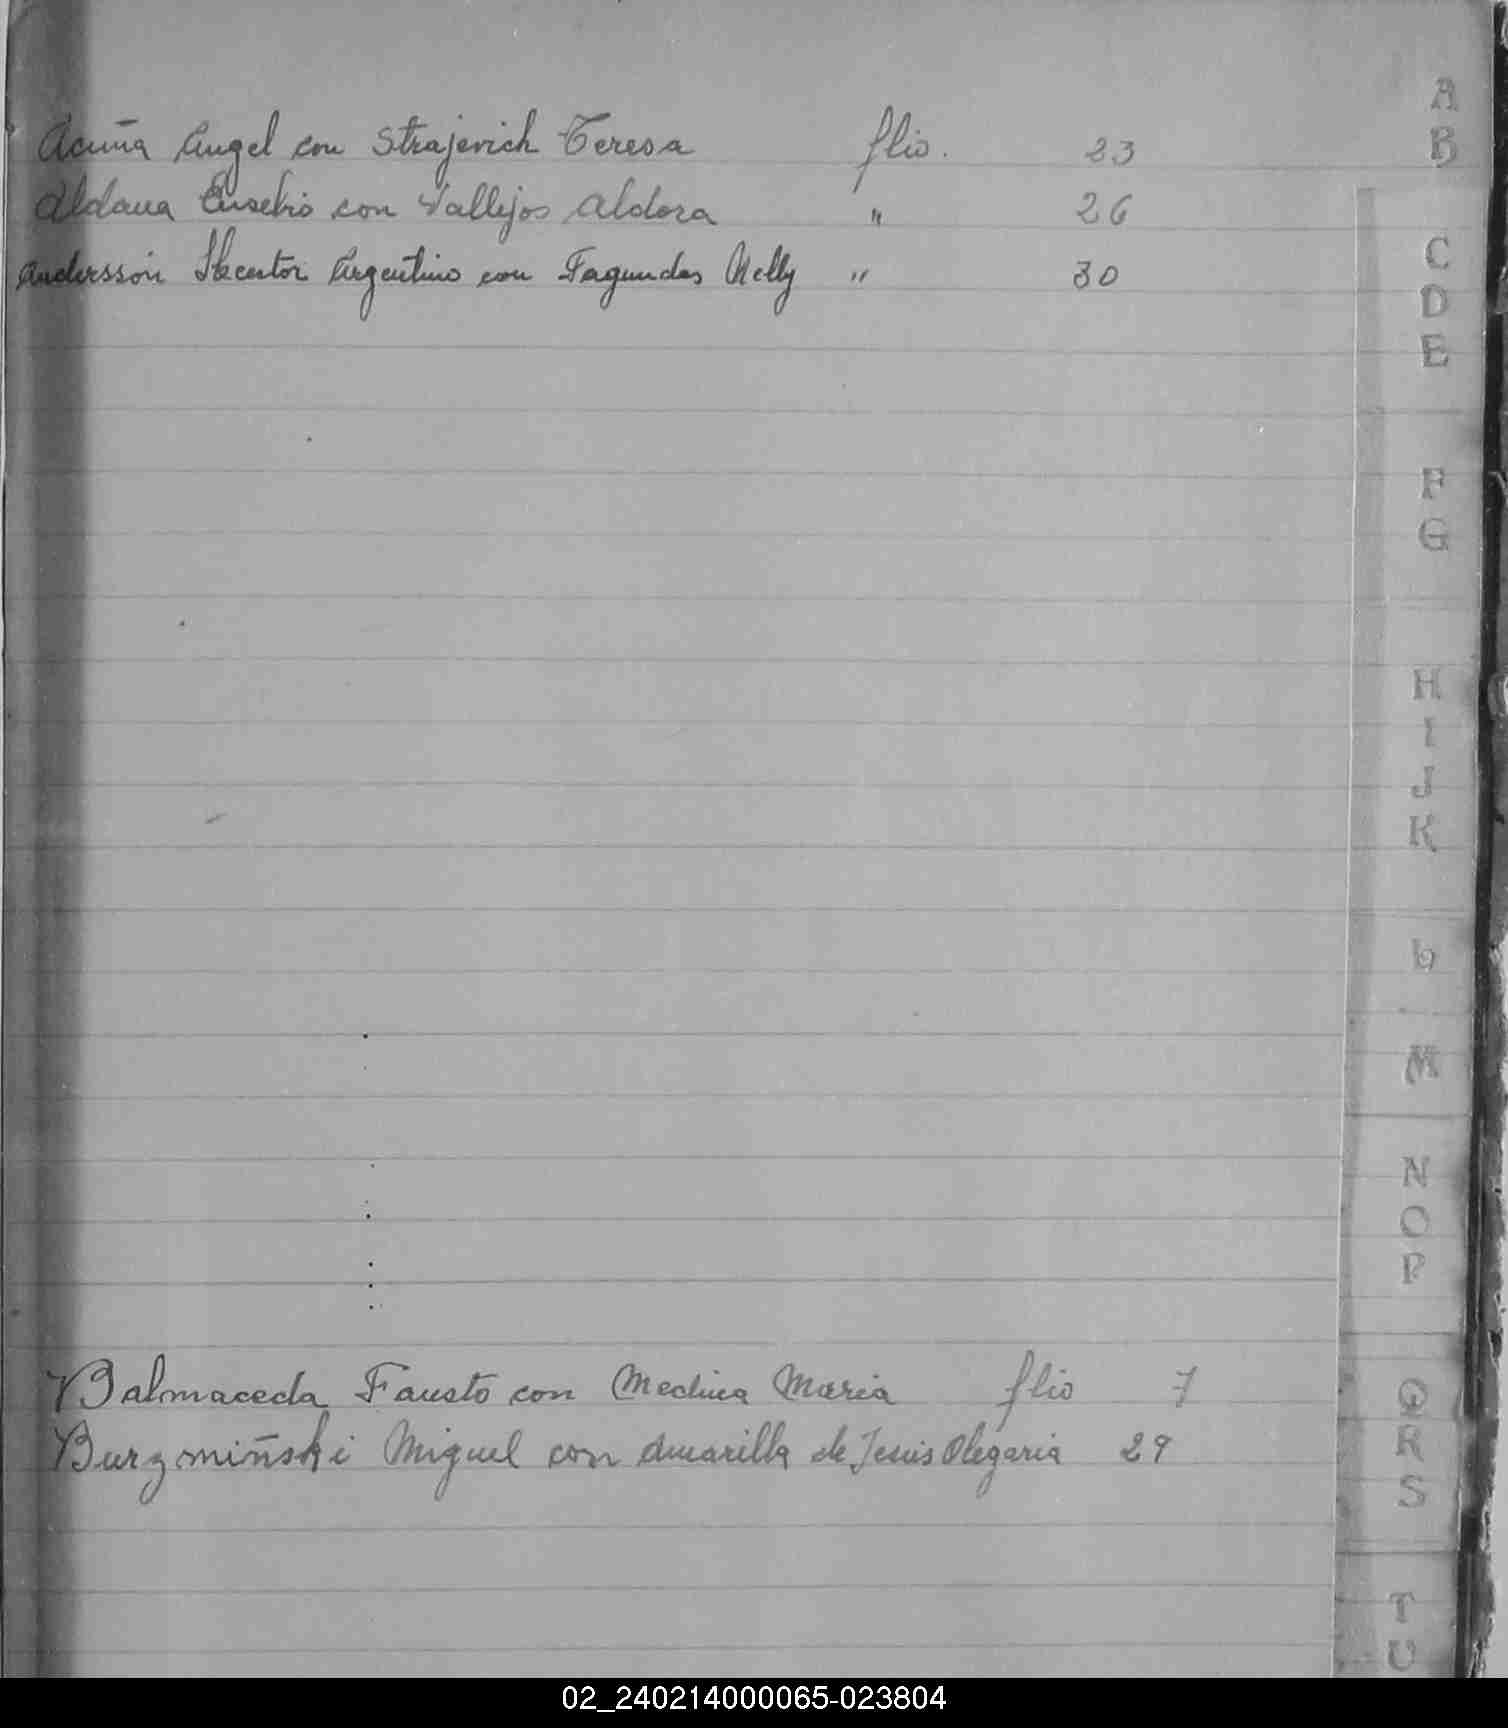 Acuña Angel con Strajevich Teresa flio. 23
Aldana Eusebio con Vallejos Aldora " 26
Andersson Hector Argentino con Fagundas Nelly " 30
Balmaceda Fausto con Medina Maria flio 7
Burzmiñski Miguel con Amarilla de Jesus Olegaria 29
A
B
C
D
E
F
G
H
I
J
K
L
M
N
O
P
Q
R
S
T
U
02_240214000065-023804